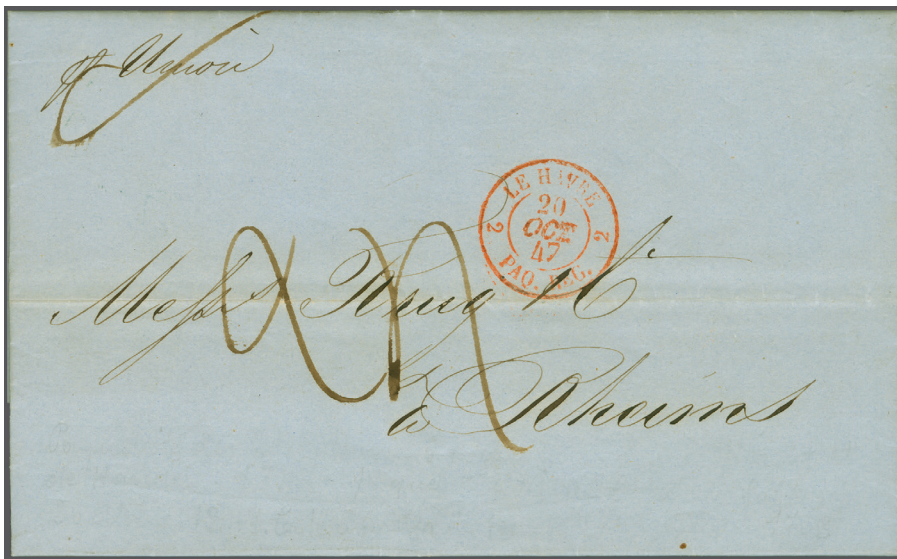 pr Union
LE HAVRE
20
OCT
47
2 2
PAQ. REG.
Mess Krug & Co
à Rheims